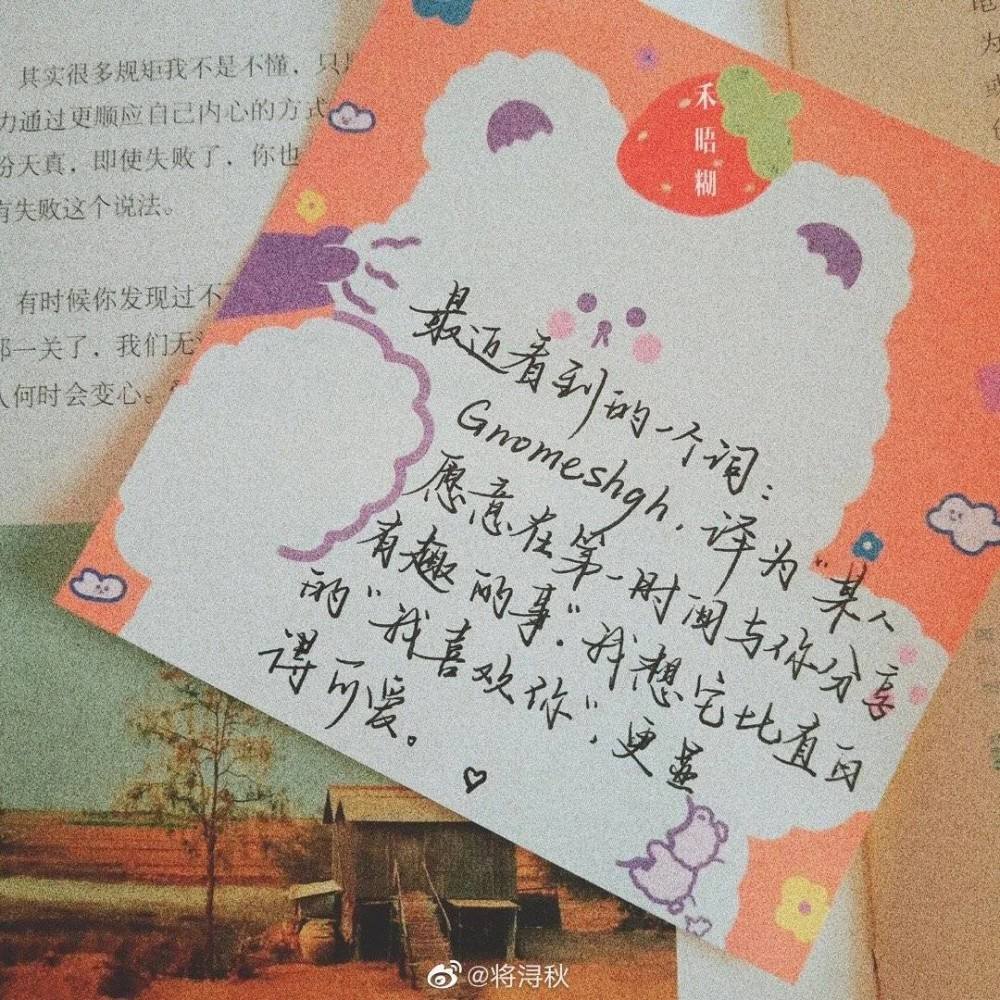 其实很多规矩我不是不懂，只是
力通过更顺应自己内心的方式
份天真，即使失败了，你也
有失败这个说法。
有时候你发现过不
那一关了，我们无
人何时会变心。
禾
晤
糊
最近看到的一个词：
Gnomeshgh，译为“某人
愿意在第一时间与你分享
有趣的事”，我想它比直白
的“我喜欢你”，更显
得可爱。
@将浔秋